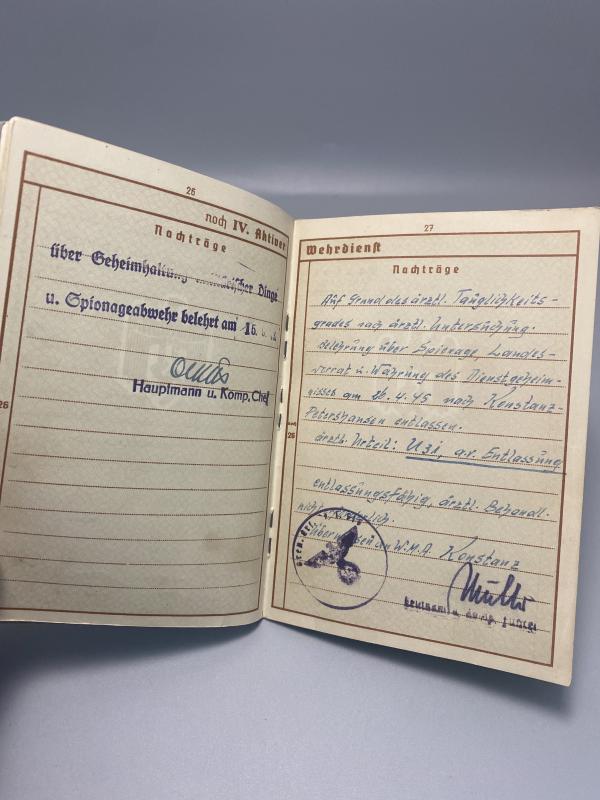 26
noch IV. Aktiver
Nachträge
über Geheimhaltung militärischer Dinge
u. Spionageabwehr belehrt am 16.
Hauptmann u. Komp. Chef
26
27
Wehrdienst
Nachträge
Auf Grund des ärztl. Tauglichkeits-
grades nach ärztl. Untersuchung.
Belehrung über Spionage, Landes-
verrat u. Wahrung des Dienstgeheim-
nisses am 26.4.45 nach Konstanz-
Petershausen entlassen.
ärztl. Urteil: U3i, a.v. Entlassung
entlassungsfähig, ärztl. Behandl.
nicht
Überwiesen an W.M.A. Konstanz
26
Müller